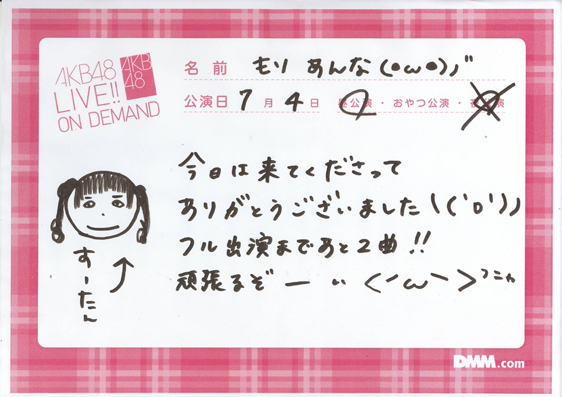 AKB48
LIVE!!
ON DEMAND
AKB
48
名前 もり あんな (●ω●)ノ゛
公演日 7月4日 公演・おやつ公演・
今日は来てくださって
ありがとうございました\(´ロ`)ノ
フル出演まであと2曲!!
頑張るぞーぃ<´ω`>フニャ
すーたん
DMM.com